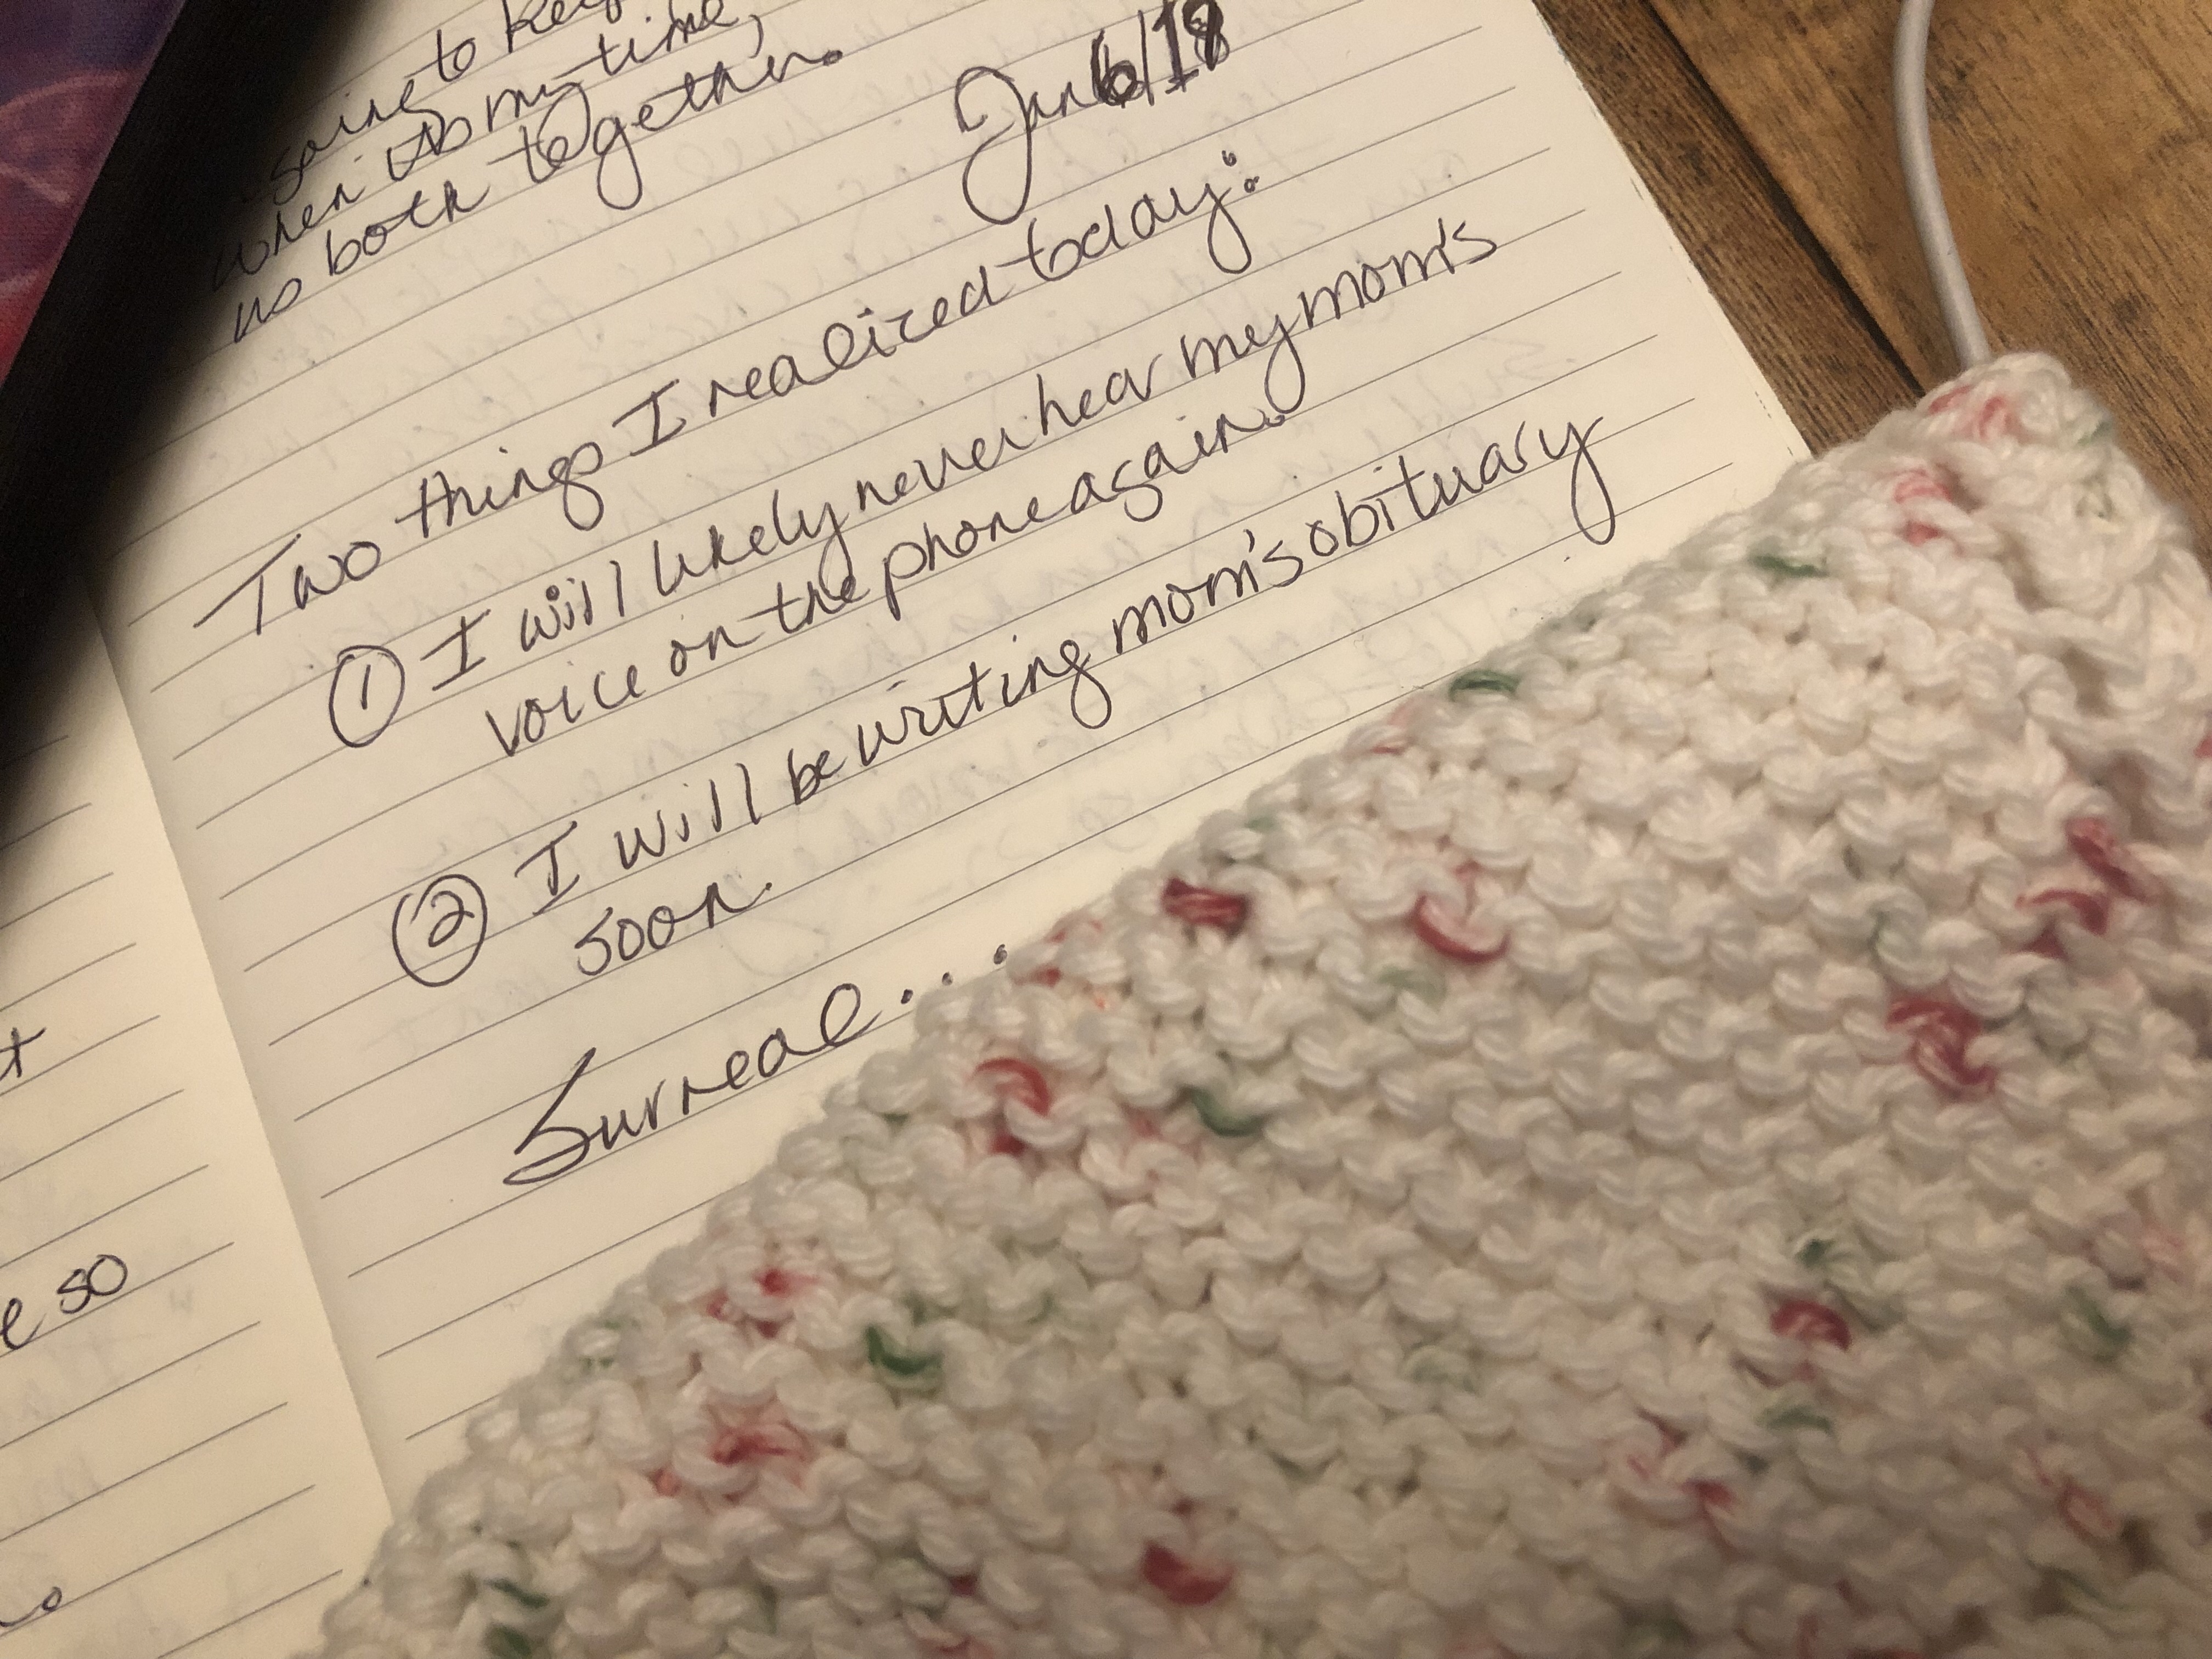 going to keep
when its my time,
us both together.
Jan 6/18
Two things I realized today:
① I will likely never hear my mom's
voice on the phone again.
② I will be writing mom's obituary
soon.
Surreal...
e so